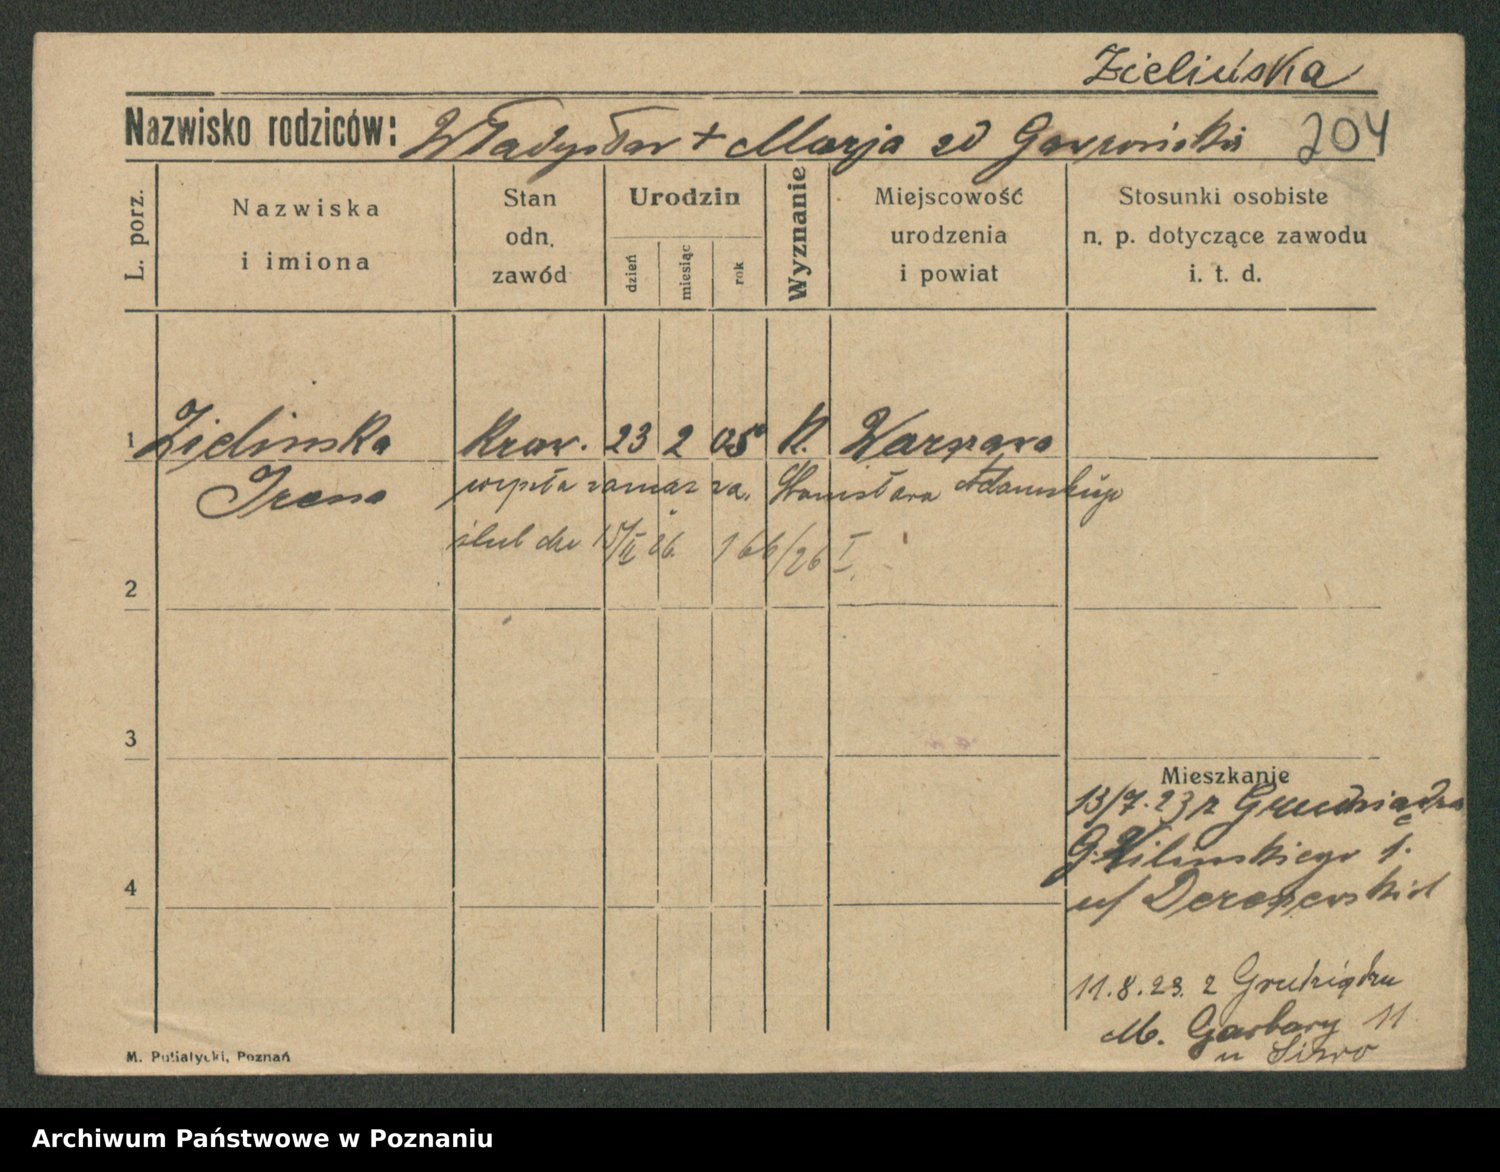 Zielińska
Nazwisko rodziców: Władysław + Marja zd Gawrońskia 204
L. porz.
Nazwiska
i imiona
Stan
odn.
zawód
Urodzin
dzień
miesiąc
rok
Wyznanie
Miejscowość
urodzenia
i powiat
Stosunki osobiste
n. p. dotyczące zawodu
i. t. d.
1 Zielinska Kraw. 23 2 05 K. Warszawa
Irena wyszła zamąż za. Stanisława Adamskiego
ślub dn 15/II 26. 166/26 I.
2
3
Mieszkanie
13/7.23 z Grudziądza
G. Wilinskiego 1.
4
u/
11.8.23. z Grudziądzu
M. Garbary 11
u
M. Putiatycki, Poznań
Archiwum Państwowe w Poznaniu